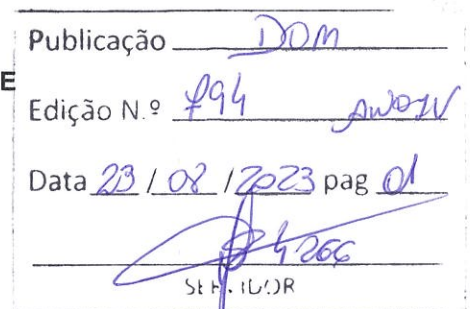 Publicação DOM
E
Edição N.º 794 ANO IV
Data 23 / 08 / 2023 pag 01
4266
SERVIDOR